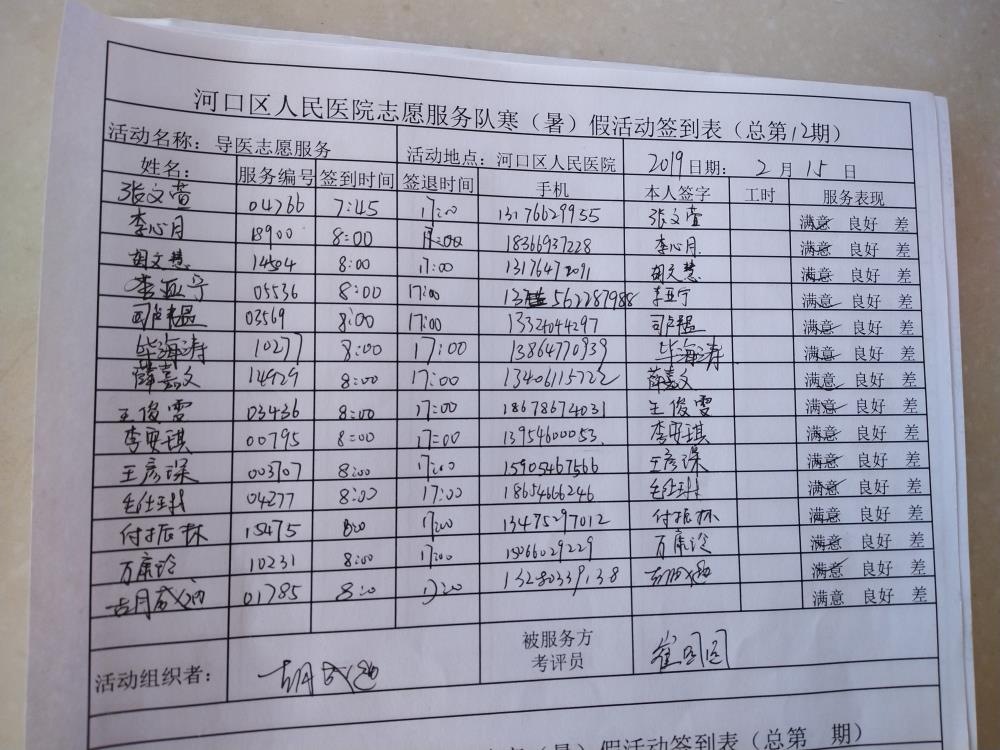 河口区人民医院志愿服务队寒（暑）假活动签到表（总第12期）
活动名称：导医志愿服务 活动地点：河口区人民医院 2019日期：2月15日
姓名： 服务编号 签到时间 签退时间 手机 本人签字 工时 服务表现
张文萱 04766 7:45 17:00 13176629955 张文萱 满意 良好 差
李心月 18900 8:00 17:00 18366937228 李心月 满意 良好 差
胡文慧 14504 8:00 17:00 13176472091 胡文慧 满意 良好 差
李亚宁 05536 8:00 17:00 562287988 李亚宁 满意 良好 差
03569 8:00 17:00 13324044297 满意 良好 差
毕海涛 10277 8:00 17:00 13864770939 毕海涛 满意 良好 差
薛嘉文 14929 8:00 17:00 13406115722 薛嘉文 满意 良好 差
王俊雯 03436 8:00 17:00 18678674031 王俊雯 满意 良好 差
李安琪 00795 8:00 17:00 13954600053 李安琪 满意 良好 差
王彦琛 003707 8:00 17:00 15905467566 王彦琛 满意 良好 差
04277 8:00 17:00 18654666246 满意 良好 差
付振林 15475 8:00 17:00 13475297012 付振林 满意 良好 差
万康玲 10231 8:00 17:00 15066029229 万康玲 满意 良好 差
01785 8:00 17:00 13280339138 满意 良好 差
满意 良好 差
活动组织者： 被服务方
考评员
假活动签到表（总第 期）